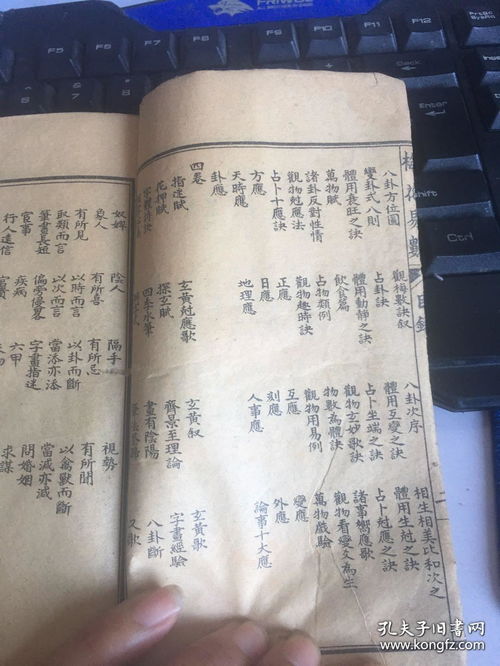 梅花易數 目錄 二
八卦方位圖 觀梅數訣叙 八卦次序 相生相美比和次之
變卦式八則 占卦訣 體用互變之訣 體用生尅之訣
體用衰旺之訣 體用動靜之訣 占卜坐端之訣 占卜尅應之訣
萬物賦 飲食篇 觀物玄妙歌訣 諸事嚮應歌
諸卦反對性情 占物類例 物數為體訣 觀物看變爻為生
觀物尅應法 觀物趣時訣 觀物用易例 萬物戲驗
占卜十應訣 正應 互應 變應
方應 日應 刻應 外應
天時應 地理應 人事應 論事十大應
卦應
四卷
指迷賦 玄黃尅應歌 玄黃叙 玄黃歌
花押賦 探玄賦 齊景至理論 字畫經驗
字體詩訣 四季水筆 畫有陰陽 八卦斷
奴婢 陰人 隔手 視勢
象人 有所喜 有所忌 有所聞
有所見 以時而言 以卦而斷 以禽獸而斷
取類而言 以次而言 當添亦添 當減亦減
筆畫長短 字畫指迷 問婚姻
官事 疾病 六甲 求謀
行人遠信
F5
F6
F7
F8
F9
F10
F11
F12
PrtSc
SysRq
Enter
Shift
Ctrl
孔夫子旧书网
www.kongfz.com